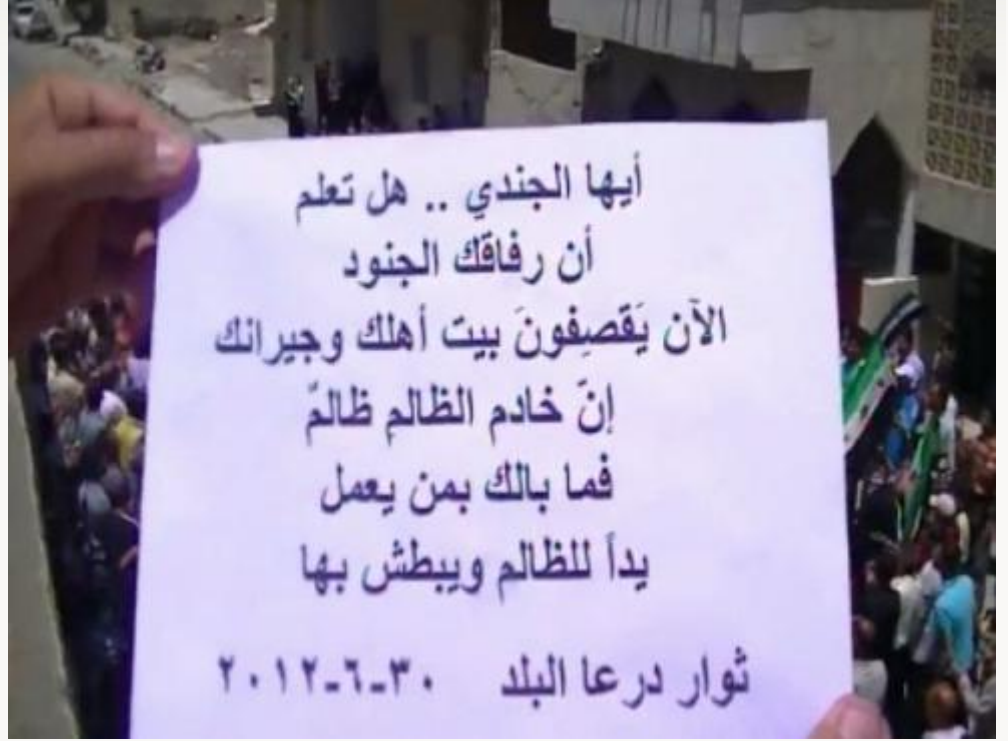 أيها الجندي .. هل تعلم
أن رفاقك الجنود
الآن يَقصِفونَ بيت أهلك وجيرانك
إنّ خادم الظالمِ ظالمٌ
فما بالك بمن يعمل
يداً للظالم ويبطش بها
ثوار درعا البلد ٣٠-٦-٢٠١٢